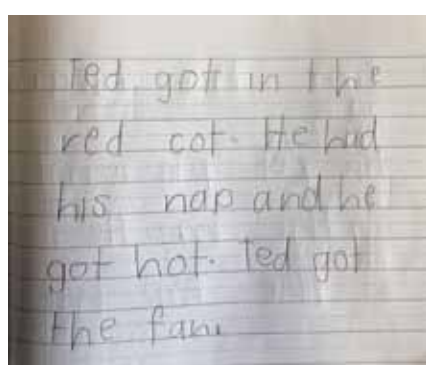 Ted got in the
red cot. He had
his nap and he
got hot. Ted got
the fan.